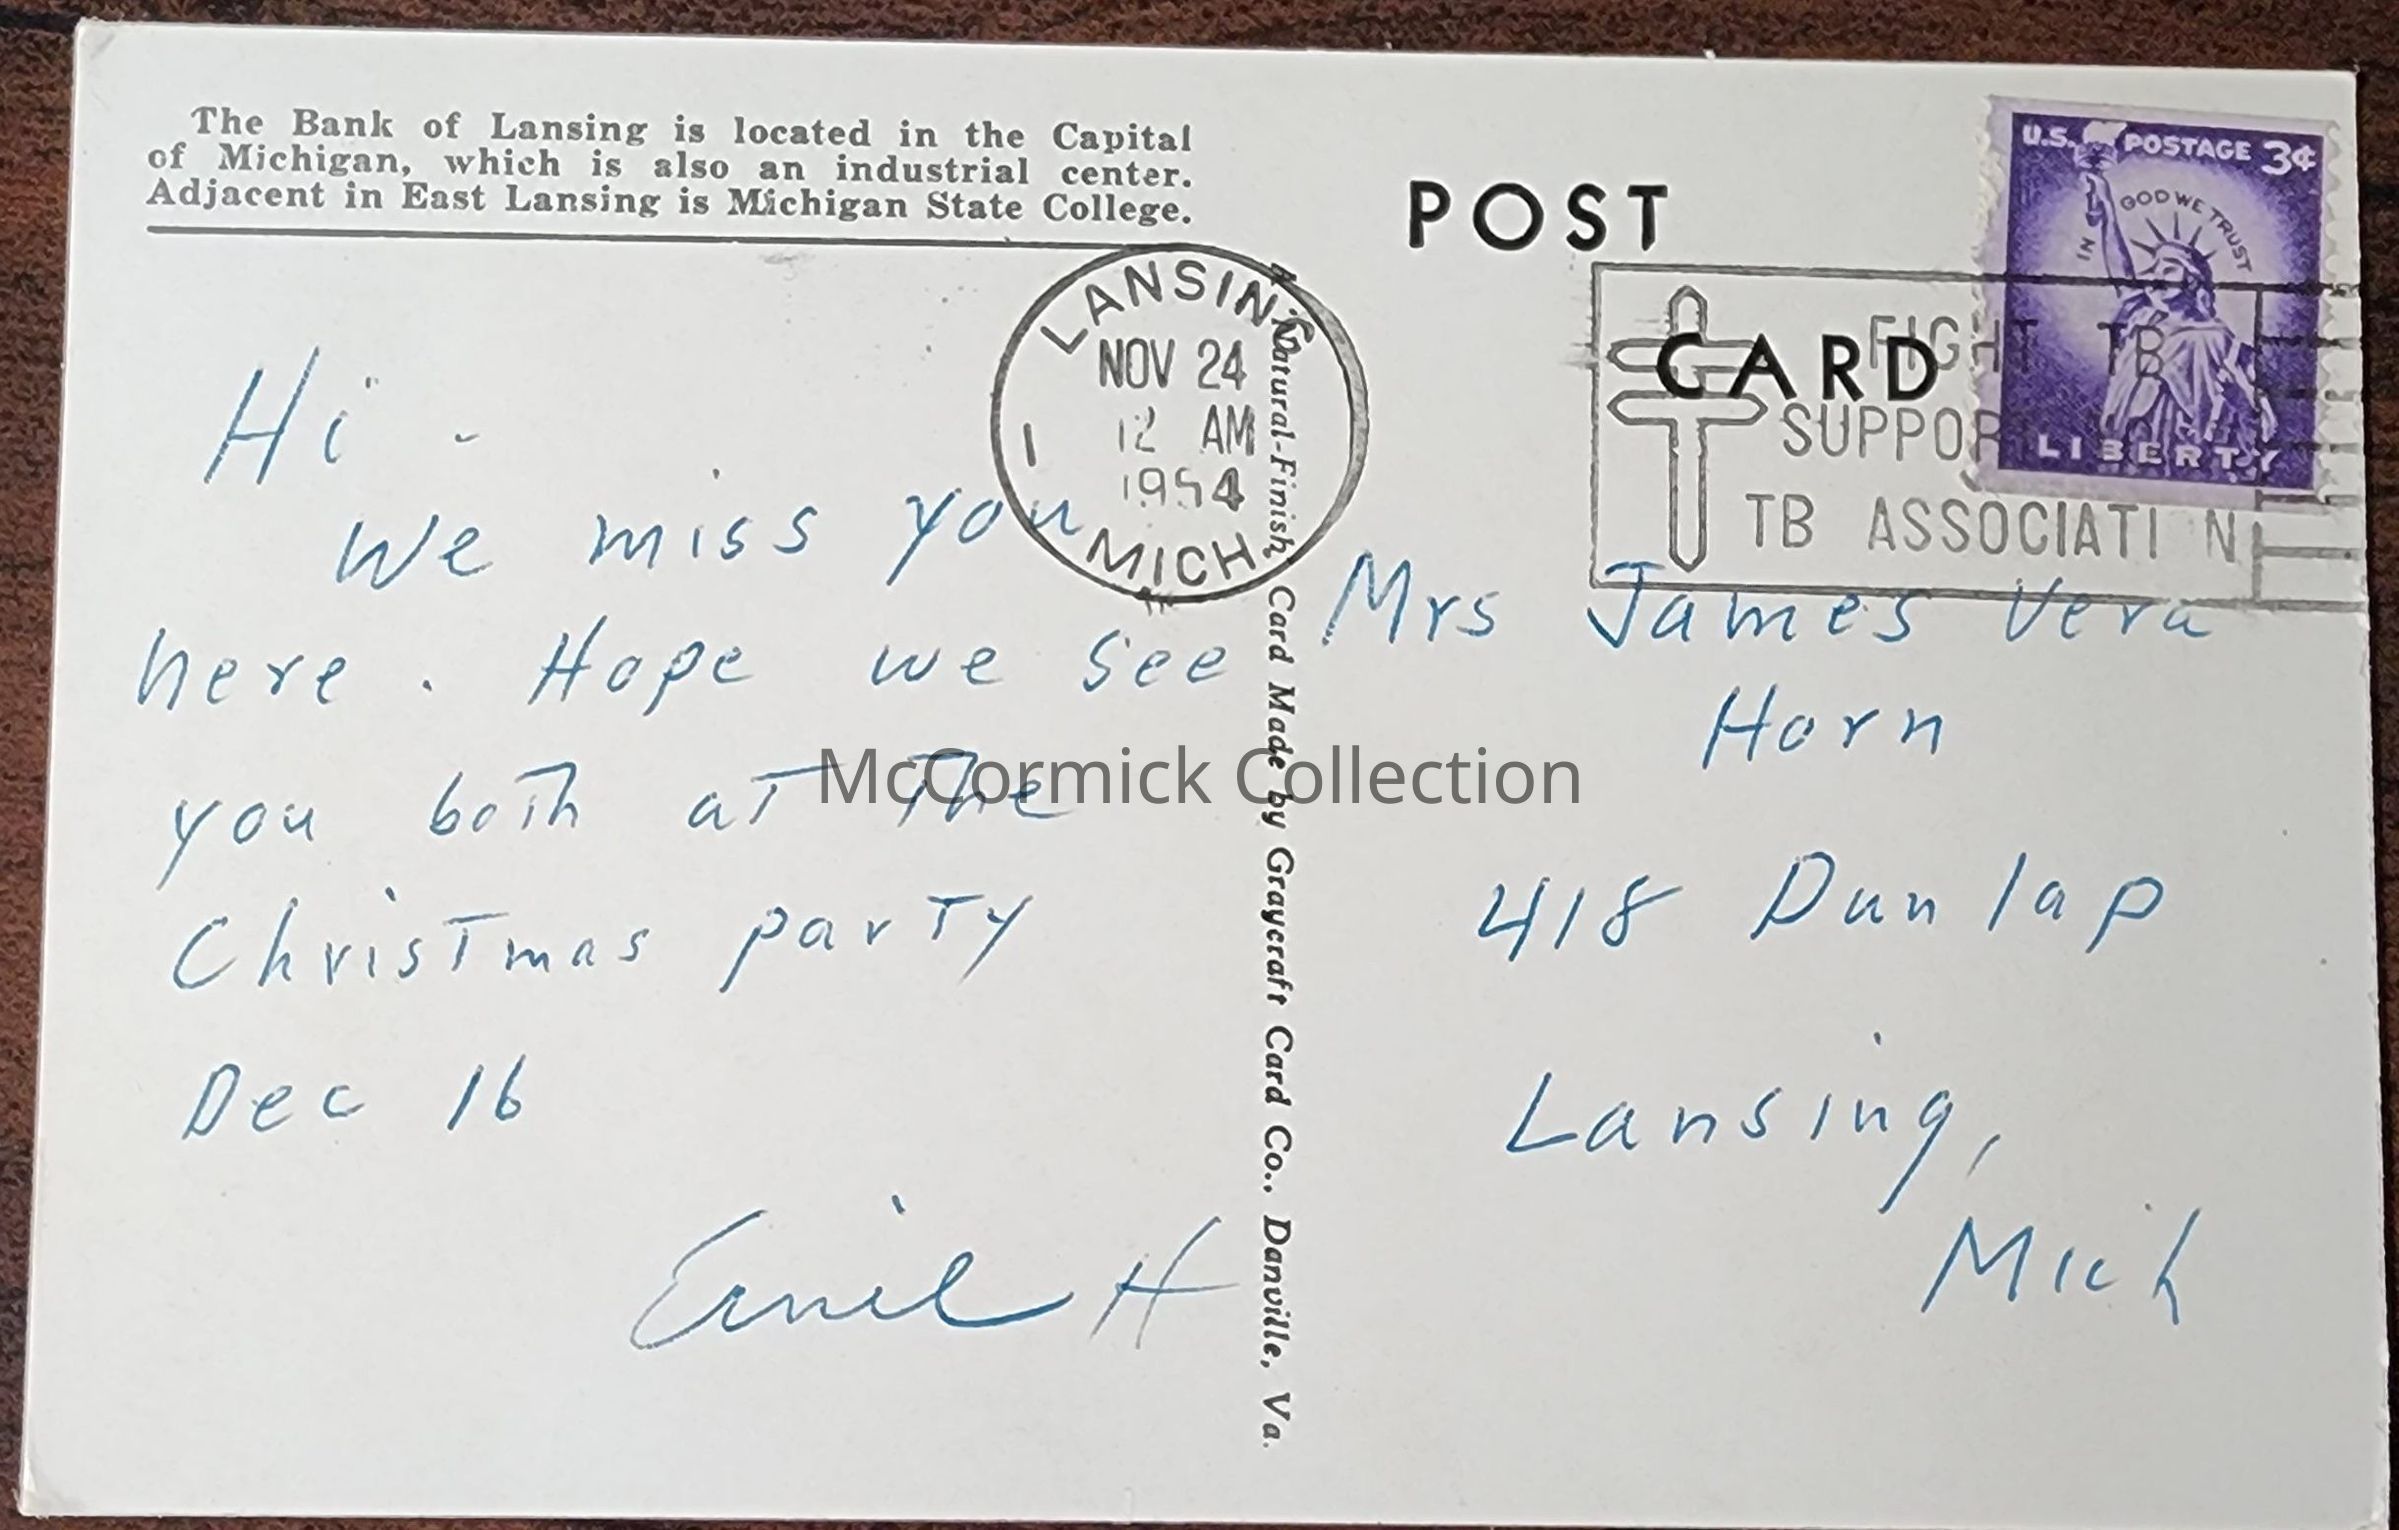 The Bank of Lansing is located in the Capital
of Michigan, which is also an industrial center.
Adjacent in East Lansing is Michigan State College.
POST
CARD
U.S. POSTAGE 3¢
IN GOD WE TRUST
LIBERTY
LANSING
NOV 24
12 AM
1954
MICH.
1
FIGHT TB
SUPPOR
TB ASSOCIATI N
Hi -
We miss you
here. Hope we see
you both at The
Christmas party
Dec 16
Emil H
A Natural-Finish Card Made by Graycraft Card Co., Danville, Va.
Mrs James Vera
Horn
418 Dunlap
Lansing,
Mich
McCormick Collection